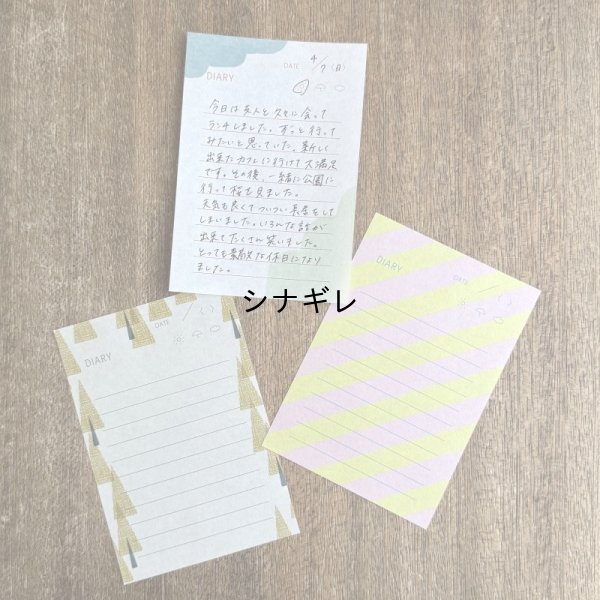 DIARY DATE 4/7(日)
今日は友人と久々に会って
ランチしました。ずっと行って
みたいと思っていた、新しく
出来たカフェに行けて大満足
です。その後、一緒に公園に
行って桜を見ました。
天気も良くてついつい長居をして
しまいました。いろんな話が
出来てたくさん笑いました。
とっても素敵な休日になり
ました。
シナギレ
DIARY DATE / ( )
DIARY DATE / ( )